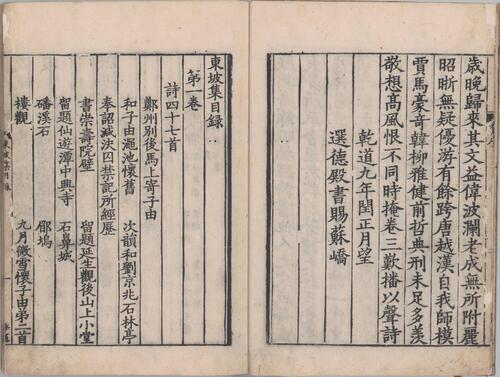 歲晚歸來其文益偉波瀾老成無所附麗
昭晣無疑優游有餘跨唐越漢自我師模
賈馬豪奇韓柳雅健前哲典刑未足多羨
敬想高風恨不同時掩卷三歎播以聲詩
乾道九年閏正月望
選德殿書賜蘇嶠
東坡集目錄
第一卷
詩四十七首
鄭州別後馬上寄子由
和子由澠池懷舊
次韻和劉京兆石林亭
奉詔減決囚禁記所經歷
書崇壽院壁
留題延生觀後山上小堂
留題仙遊潭中興寺
石鼻城
磻溪石
郿塢
樓觀
九月微雪懷子由弟二首
東坡集目錄
一